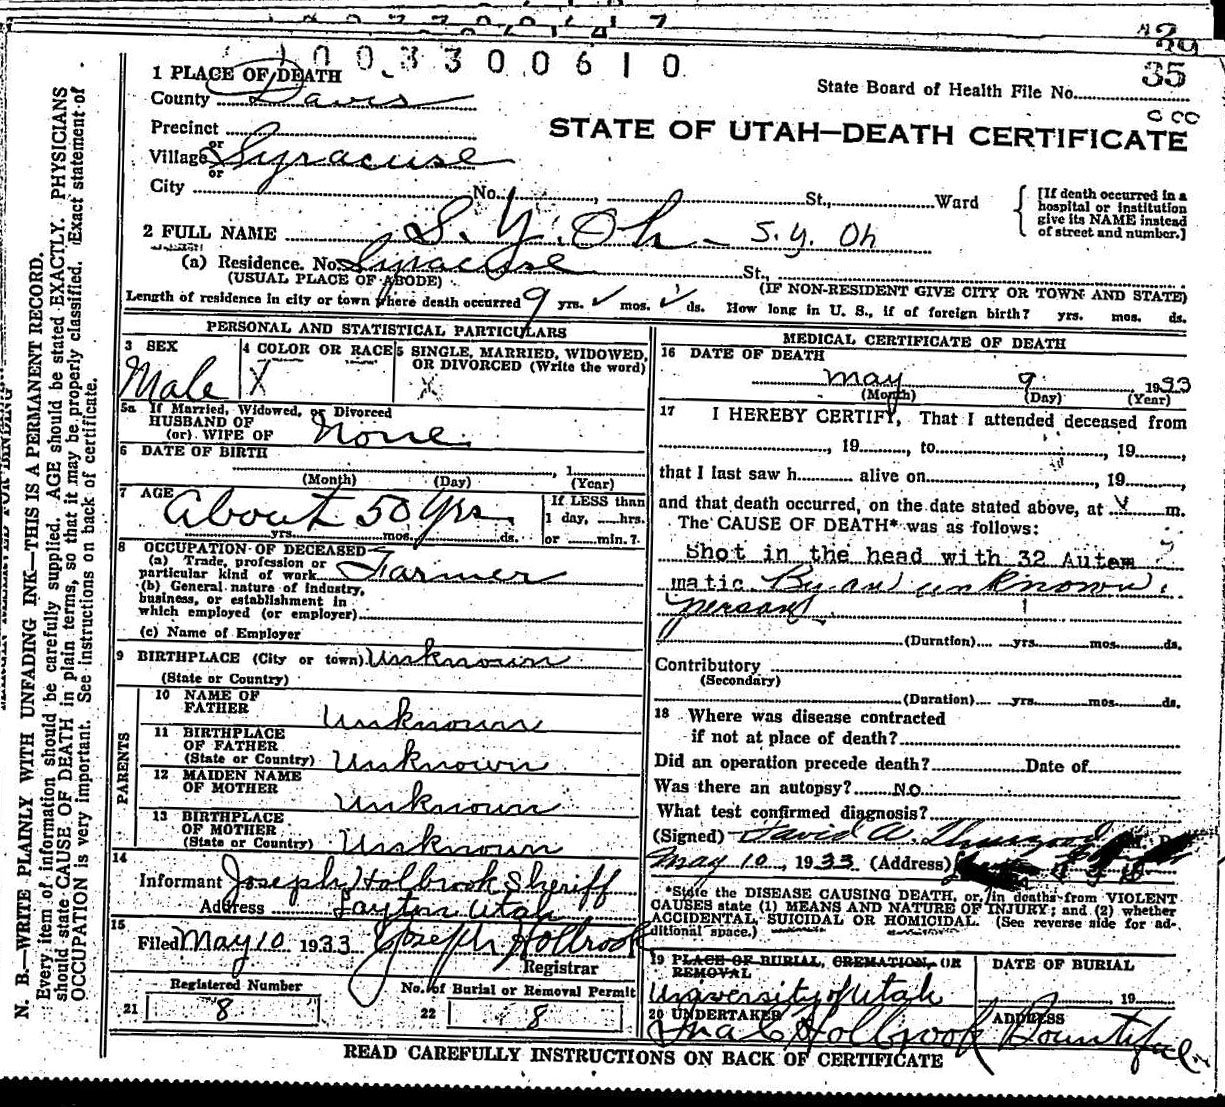 1003300610
35
1 PLACE OF DEATH
County Davis
State Board of Health File No.
Precinct
or
Village Syracuse
or
STATE OF UTAH—DEATH CERTIFICATE
City No. St., Ward
[If death occurred in a
hospital or institution
give its NAME instead
of street and number.]
2 FULL NAME S. Y. Oh - S. Y. Oh
(a) Residence. No. Syracuse St.,
(USUAL PLACE OF ABODE) (IF NON-RESIDENT GIVE CITY OR TOWN AND STATE)
Length of residence in city or town where death occurred 9 yrs. ✓ mos. ✓ ds. How long in U. S., if of foreign birth? yrs. mos. ds.
PERSONAL AND STATISTICAL PARTICULARS
3 SEX
Male
4 COLOR OR RACE
X
5 SINGLE, MARRIED, WIDOWED,
OR DIVORCED (Write the word)
X
5a If Married, Widowed, or Divorced
HUSBAND OF
(or) WIFE OF None
6 DATE OF BIRTH
, 1
(Month) (Day) (Year)
7 AGE About 50 Yrs.
yrs. mos. ds.
If LESS than
1 day, hrs.
or min.?
8 OCCUPATION OF DECEASED
(a) Trade, profession or
particular kind of work Farmer
(b) General nature of industry,
business, or establishment in
which employed (or employer)
(c) Name of Employer
9 BIRTHPLACE (City or town) Unknown
(State or Country)
PARENTS
10 NAME OF
FATHER Unknown
11 BIRTHPLACE
OF FATHER
(State or Country) Unknown
12 MAIDEN NAME
OF MOTHER Unknown
13 BIRTHPLACE
OF MOTHER
(State or Country) Unknown
14
Informant Joseph Holbrook Sheriff
Address Layton Utah
15
Filed May 10 1933 Joseph Holbrook
Registrar
Registered Number
21 8
No. of Burial or Removal Permit
22 8
MEDICAL CERTIFICATE OF DEATH
16 DATE OF DEATH
May 9 1933
(Month) (Day) (Year)
17 I HEREBY CERTIFY, That I attended deceased from
, 19 , to , 19 ,
that I last saw h alive on , 19 ,
and that death occurred, on the date stated above, at ✓ m.
The CAUSE OF DEATH* was as follows:
Shot in the head with 32 Autem
matic By an unknown
person
(Duration) yrs. mos. ds.
Contributory
(Secondary)
(Duration) yrs. mos. ds.
18 Where was disease contracted
if not at place of death?
Did an operation precede death? Date of
Was there an autopsy? No
What test confirmed diagnosis?
(Signed) David A. M. D.
May 10, 1933 (Address)
*State the DISEASE CAUSING DEATH, or, in deaths from VIOLENT
CAUSES state (1) MEANS AND NATURE OF INJURY; and (2) whether
ACCIDENTAL, SUICIDAL OR HOMICIDAL. (See reverse side for ad-
ditional space.)
19 PLACE OF BURIAL, CREMATION, OR
REMOVAL
University of Utah
DATE OF BURIAL
, 19
20 UNDERTAKER
Holbrook
ADDRESS
Bountiful
READ CAREFULLY INSTRUCTIONS ON BACK OF CERTIFICATE
N. B.—WRITE PLAINLY WITH UNFADING INK—THIS IS A PERMANENT RECORD.
Every item of information should be carefully supplied. AGE should be stated EXACTLY. PHYSICIANS
should state CAUSE OF DEATH in plain terms, so that it may be properly classified. Exact statement of
OCCUPATION is very important. See instructions on back of certificate.